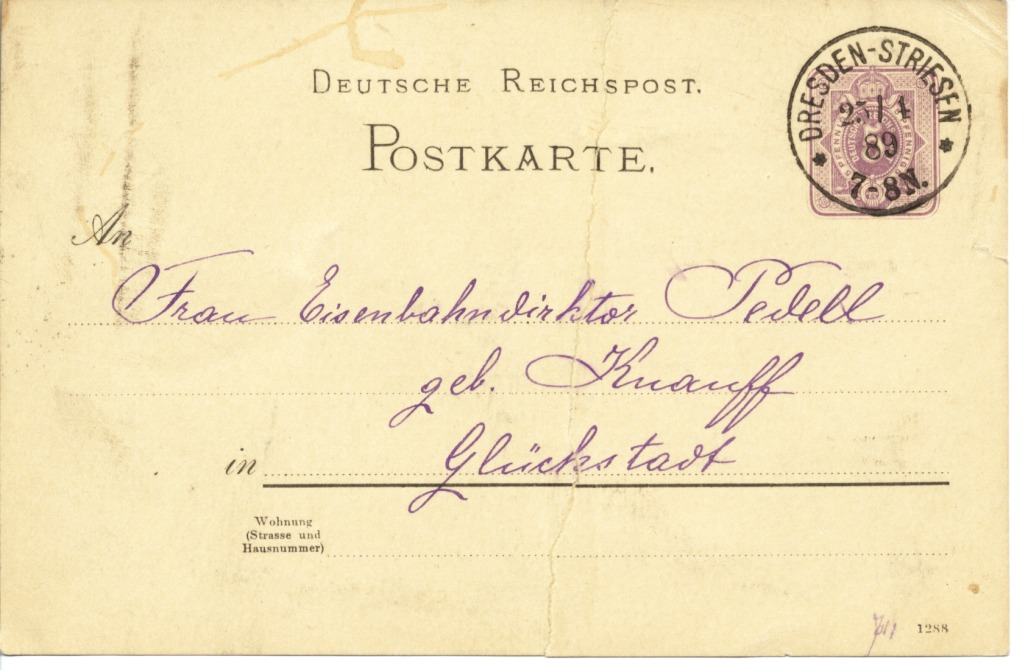 DEUTSCHE REICHSPOST.
POSTKARTE.
DRESDEN-STRIESEN
89
7-8N.
An
Frau Eisenbahndirktor Pedell
geb. Knauff
in Glückstadt
Wohnung
(Strasse und
Hausnummer)
1288